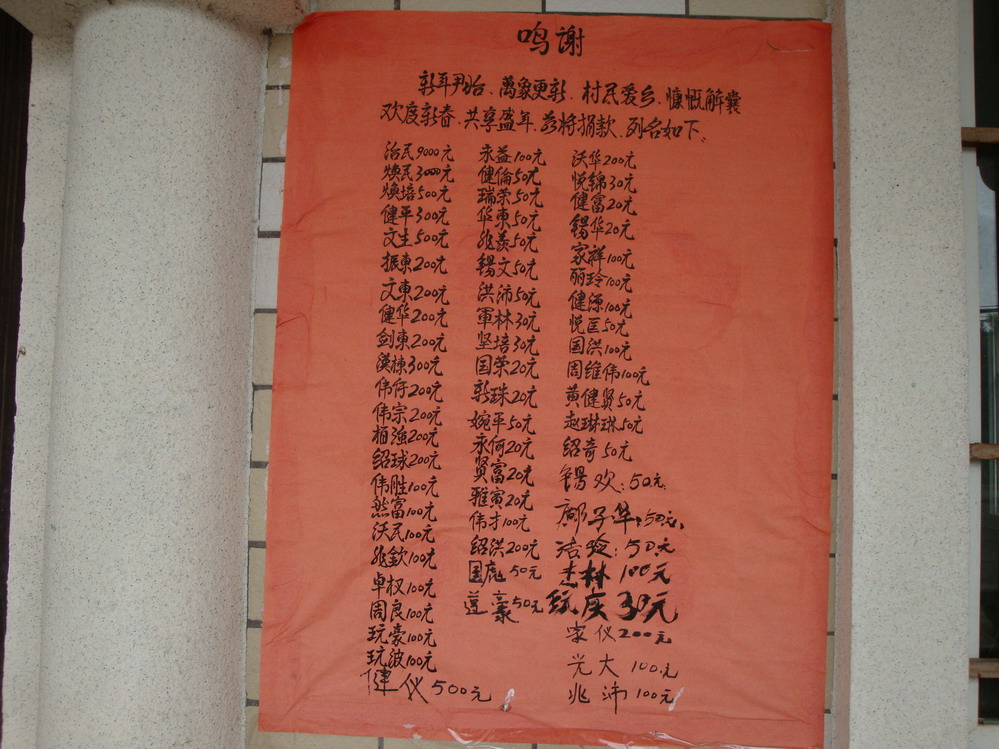 鸣谢
新年尹始、萬象更新、村民爱乡、慷慨解囊
欢度新春、共享盛年、兹将捐款、列名如下、
治民9000元
焕民3000元
焕培500元
健平300元
文生500元
振東200元
文東200元
健华200元
剑東200元
漢棟300元
伟仔200元
伟宗200元
柏强200元
绍球200元
伟胜100元
然富100元
沃民100元
兆欽100元
卓权100元
周良100元
玩豪100元
玩波100元
健仪500元
永益100元
健倫50元
瑞荣50元
华東50元
兆羡50元
锡文50元
洪沛50元
軍林30元
坚培30元
国荣20元
新珠20元
婉平50元
永何20元
贤富20元
雅寅20元
伟才100元
绍洪200元
国彪50元
莲豪50元
沃华200元
悦錦30元
健富20元
锡华20元
家祥100元
丽玲100元
健源100元
悦匡50元
国洪100元
周维伟100元
黄健贤50元
赵琳琳50元
绍奇50元
锡欢:50元
鄺子华:50元
洁玲:50元
杰林100元
玩庆30元
家仪200元
光大100元
兆沛100元